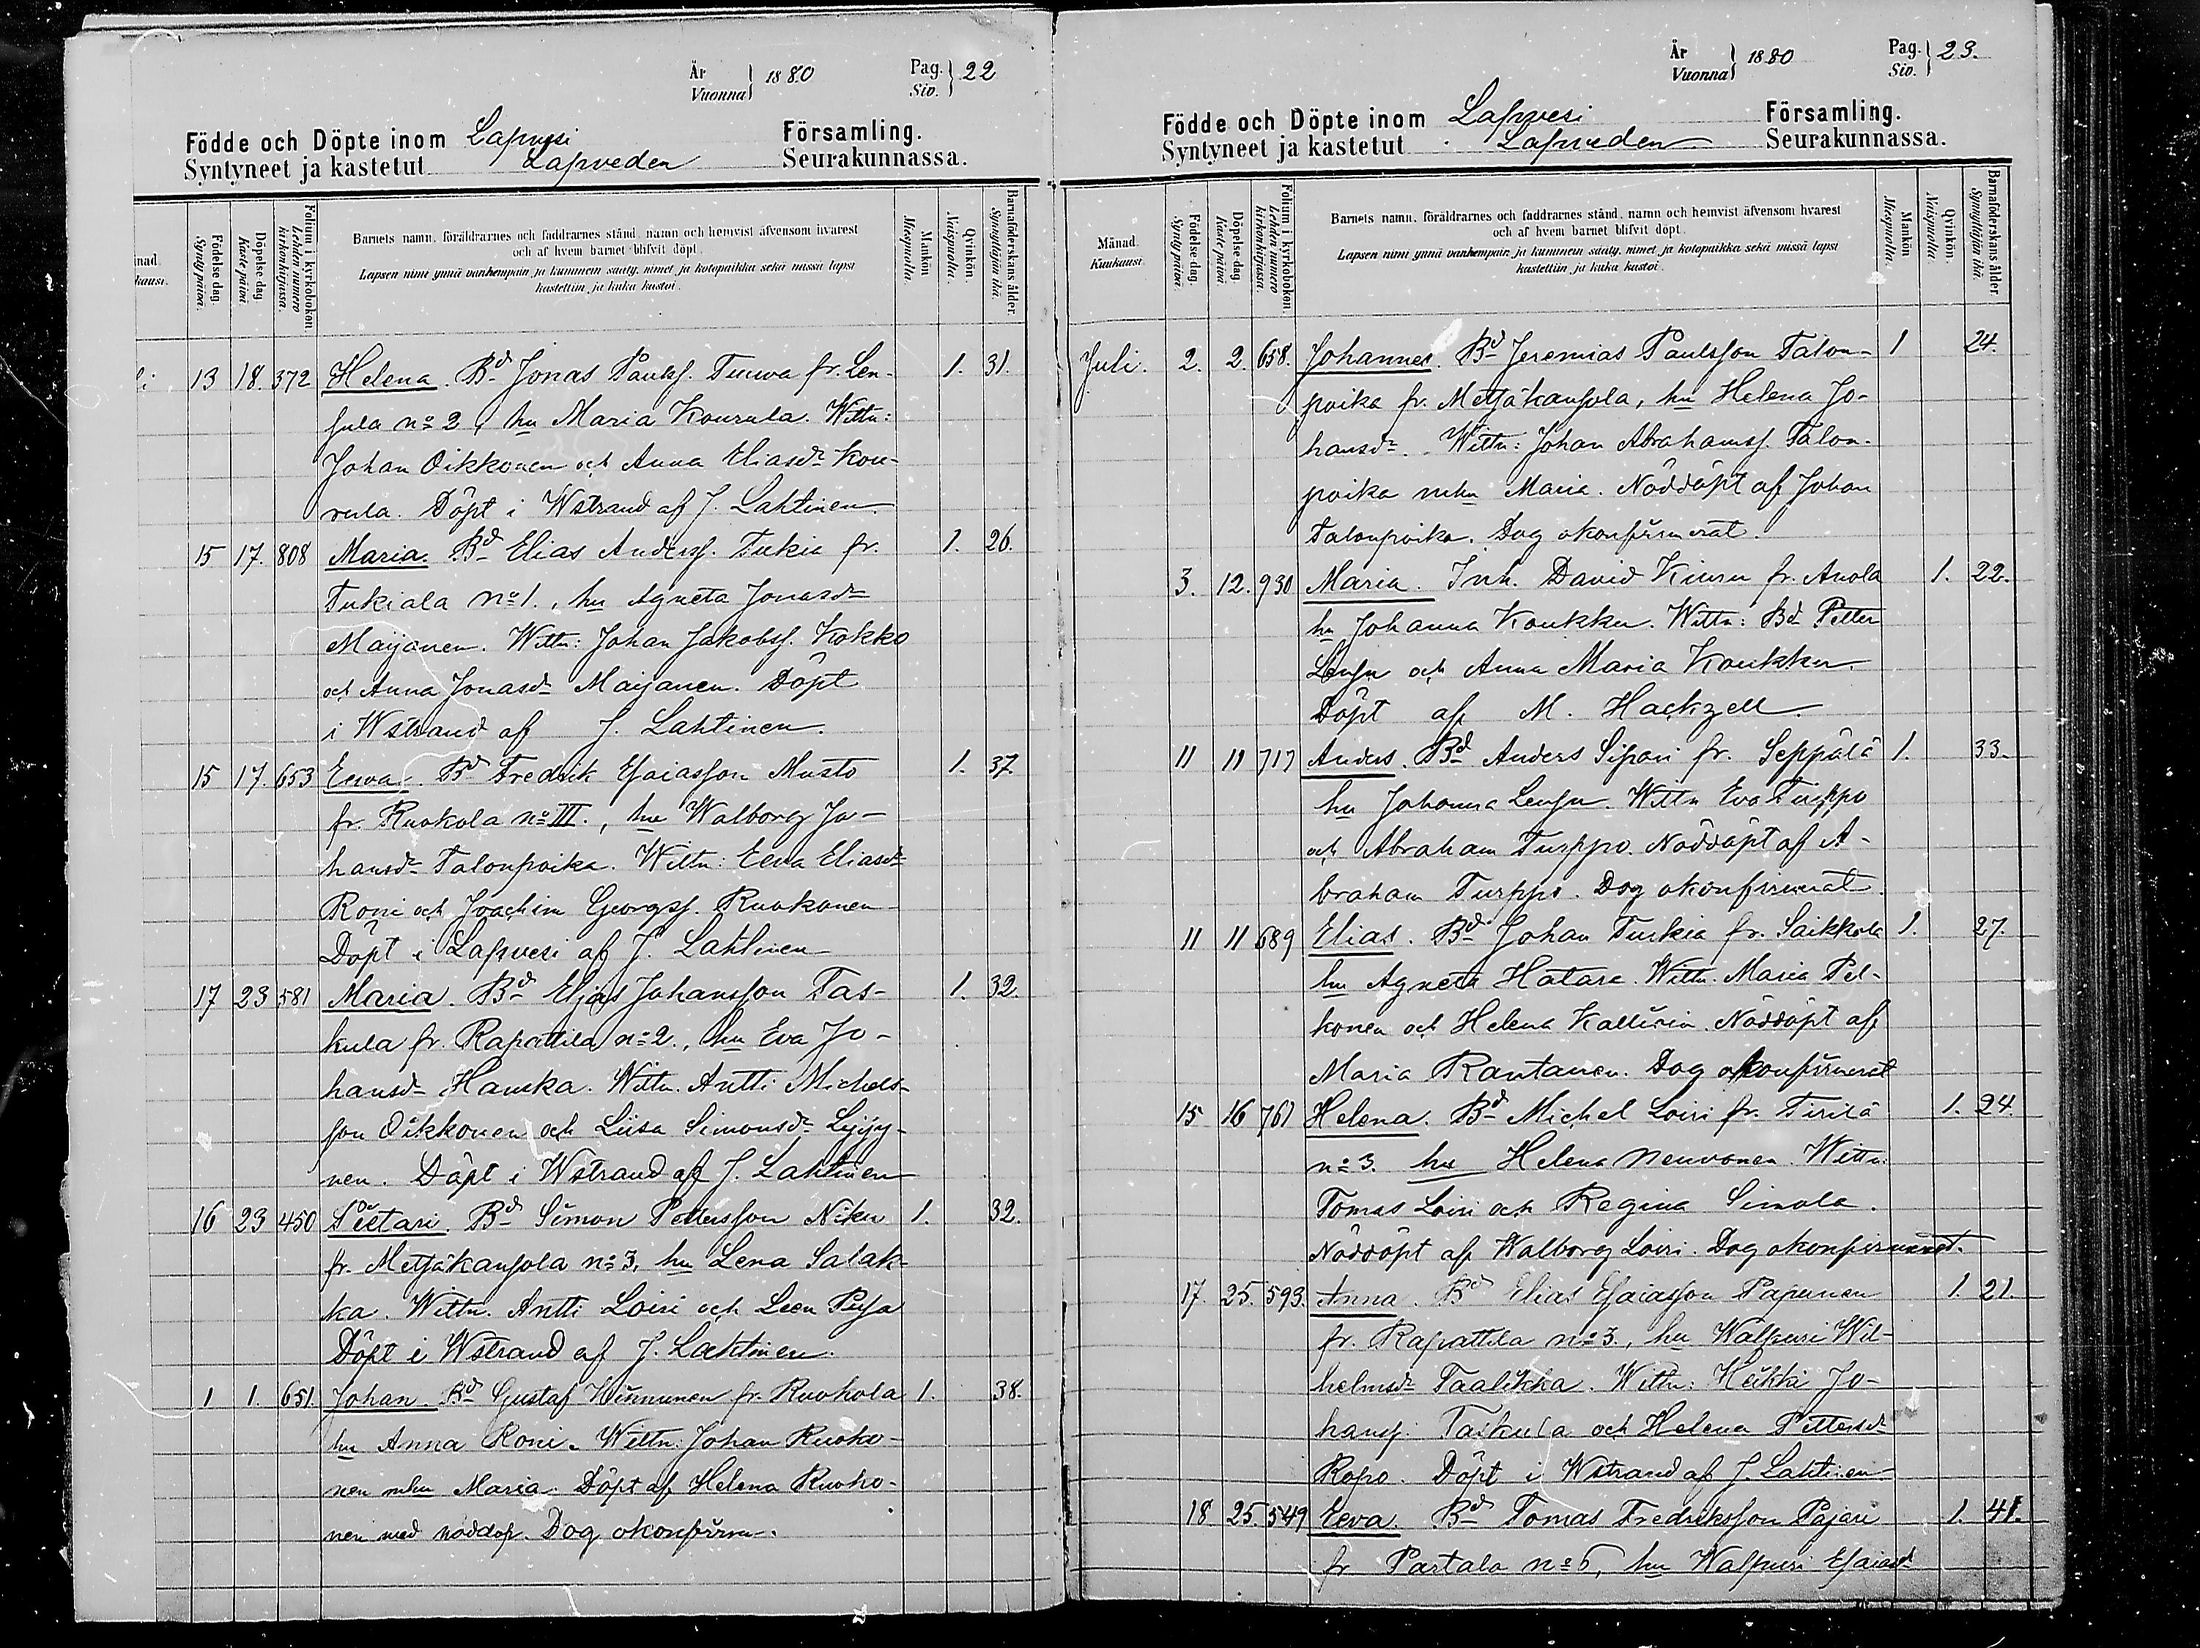 År
Vuonna } 1880 Pag.
Siv. } 22
Födde och Döpte inom Lapvesi Församling.
Syntyneet ja kastetut Lapveden Seurakunnassa.
nad.
kausi.
Födelse dag.
Syntypäivä.
Döpelse dag.
Kaste päivä.
Folium i kyrkoboken.
Lehden numero
kirkonkirjassa.
Barnets namn, föräldrarnes och faddrarnes stånd, namn och hemvist äfvensom hvarest
och af hvem barnet blifvit döpt.
Lapsen nimi ynnä vanhempain ja kummein sääty, nimet ja kotopaikka sekä missä lapsi
kastettiin ja kuka kastoi.
Mankön.
Miespuolta.
Qvinkön.
Naispuolta.
Barnaföderskans ålder.
Synnyttäjän ikä.
li 13 18. 372 Helena. Bd Jonas Paulss. Turwa fr. Len- 1. 31.
sula no 2, hu Maria Kourula. Wittn:
Johan Oikkonen och Anna Eliasdr Kou-
rula. Döpt i Wstrand af J. Lahtinen
15 17. 808 Maria. Bd Elias Anderss. Tukia fr. 1. 26.
Tukiala no 1., hu Agneta Jonasdr
Maijanen. Wittn: Johan Jakobss. Kokko
och Anna Jonasdr Maijanen. Döpt
i Wstrand af J. Lahtinen.
15 17. 653 Eewa. Bd Fredrik Esaiasson Musto 1. 37.
fr. Ruokola no III., hu Walborg Jo-
hansdr Talonpoika. Wittn: Eeva Eliasdr
Roni och Joachim Georgss. Ruokonen
Döpt i Lapvesi af J. Lahtinen
17 23 581 Maria. Bd Elias Johansson Tas- 1. 32.
kula fr. Rapattila no 2., hu Eva Jo-
hansdr Hanska. Wittn. Antti Michels-
son Oikkonen och Liisa Simonsdr Lyijy-
nen. Döpt i Wstrand af J. Lahtinen
16 23 450 Pietari. Bd Simon Pettersson Niku 1. 32.
fr. Metsäkansola no 3, hu Lena Salak-
ka. Wittn. Antti Loiri och Leen Pusa
Döpt i Wstrand af J. Lahtinen.
1 1. 651. Johan. Bd Gustaf Hinnunen fr. Ruokola 1. 38.
hu Anna Roni. Wittn: Johan Ruoko-
nen mhu Maria. Döpt af Helena Ruoko-
nen med nöddop. Dog okonfirm.
År
Vuonna } 1880 Pag.
Siv. } 23.
Födde och Döpte inom Lapvesi Församling.
Syntyneet ja kastetut Lapveden Seurakunnassa.
Månad.
Kuukausi.
Födelse dag.
Syntypäivä.
Döpelse dag.
Kaste päivä.
Folium i kyrkoboken.
Lehden numero
kirkonkirjassa.
Barnets namn, föräldrarnes och faddrarnes stånd, namn och hemvist äfvensom hvarest
och af hvem barnet blifvit döpt.
Lapsen nimi ynnä vanhempain ja kummein sääty, nimet ja kotopaikka sekä missä lapsi
kastettiin ja kuka kastoi.
Mankön
Miespuolta.
Qvinkön.
Naispuolta.
Barnaföderskans ålder.
Synnyttäjän ikä.
Juli. 2. 2. 658. Johannes. Bd Jeremias Paulsson Talon- 1 24.
poika fr. Metsäkansola, hu Helena Jo-
hansdr. Wittn: Johan Abrahamss. Talon-
poika mhu Maria. Nöddöpt af Johan
Talonpoika. Dog okonfirmerat.
3. 12. 930 Maria. Inh. David Kiuru fr. Anola 1. 22.
hu Johanna Koukku. Wittn: Bd Petter
Lensu och Anna Maria Koukku.
Döpt af M. Hackzell.
11 11 717 Anders. Bd Anders Sipari fr. Seppälä 1. 33.
hu Johanna Lensu. Wittn Eva Turppo
och Abraham Turppo. Nöddöpt af A-
braham Turppo. Dog okonfirmerat.
11 11 689 Elias. Bd Johan Turkia fr. Saikkola 1. 27.
hu Agneta Hatara. Wittn. Maria Pel-
konen och Helena Kallusin. Nöddöpt af
Maria Rantanen. Dog okonfirmerat
15 16 761 Helena. Bd Michel Loiri fr. Tirilä 1. 24
no 3. hu Helena Neuvonen. Wittn.
Tomas Loiri och Regina Simola.
Nöddöpt af Walborg Loiri. Dog okonfirmerat.
17. 25. 593. Anna. Bd Elias Esaiasson Papunen 1. 21.
fr. Rapattila no 3., hu Walpuri Wil-
helmsdr Taalikka. Wittn: Heikki Jo-
hanss. Taskula och Helena Pettersdr
Ropo. Döpt i Wstrand af J. Lahtinen
18 25. 549 Eeva. Bd Tomas Fredriksson Pajari 1. 41.
fr Partala no 5, hu Walpuri Esaiasd